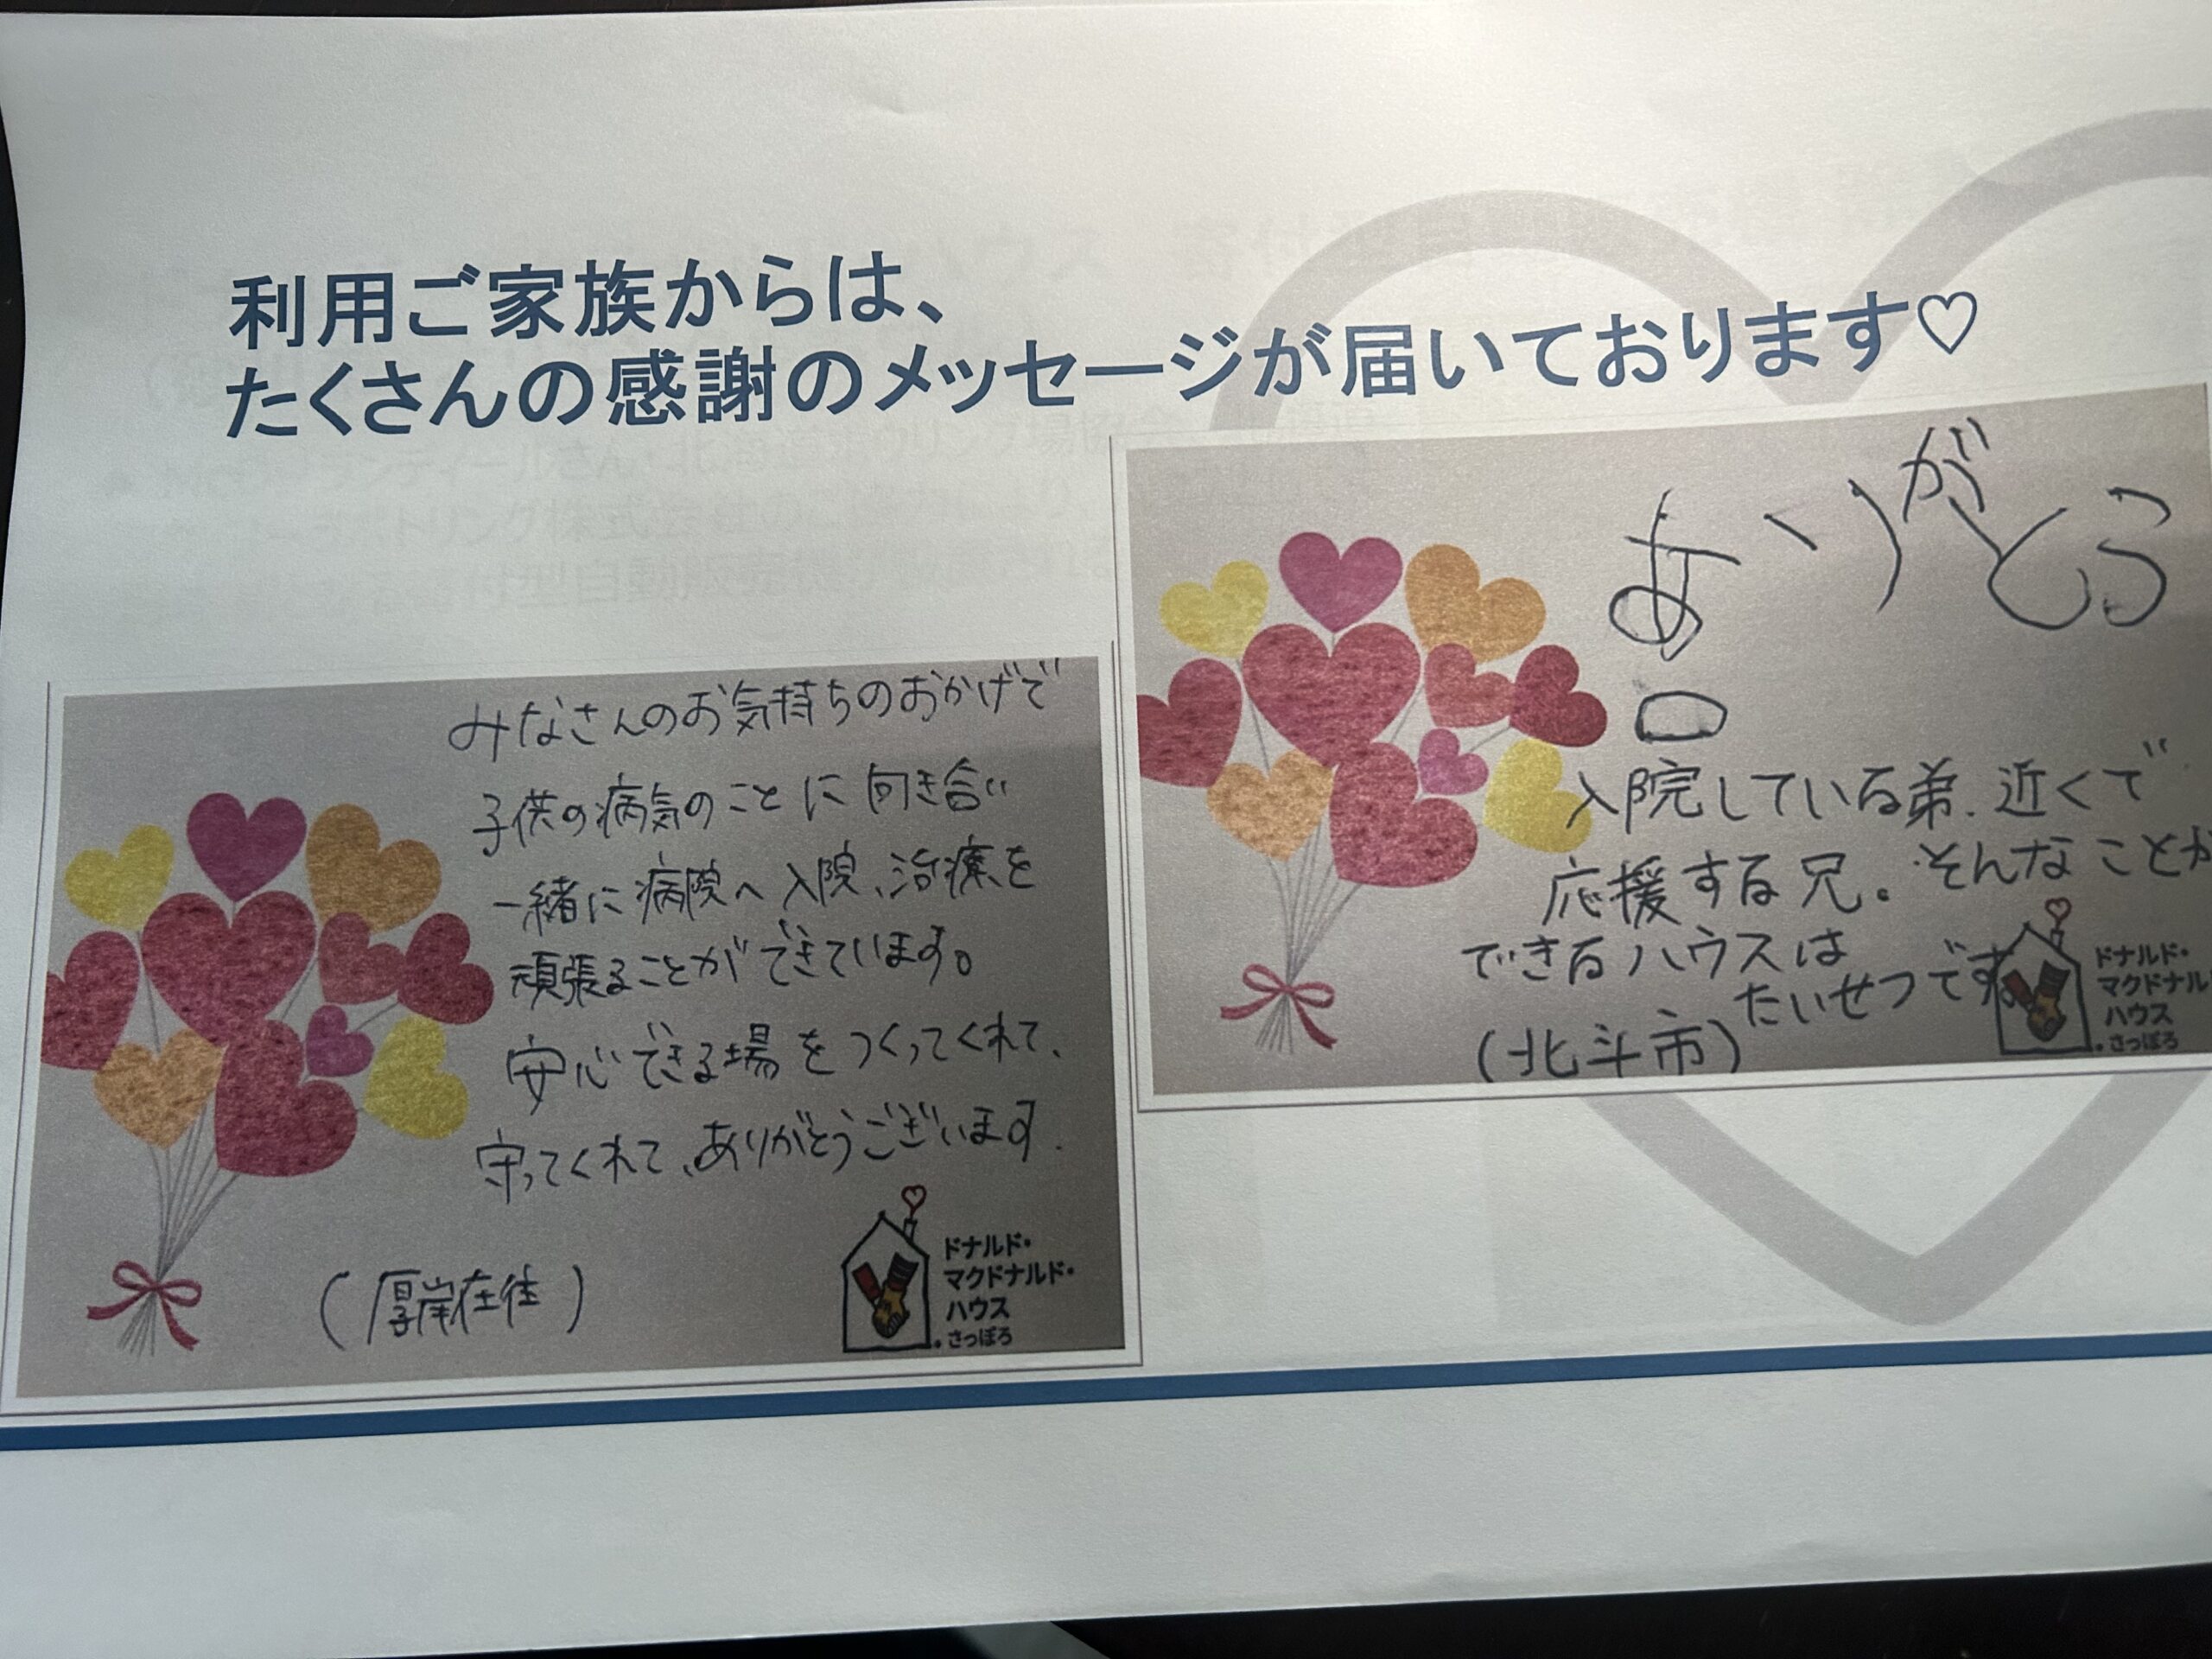 利用ご家族からは、
たくさんの感謝のメッセージが届いております♡
みなさんのお気持ちのおかげで
子供の病気のことに向き合い
一緒に病院へ入院、治療を
頑張ることができています。
安心できる場をつくってくれて、
守ってくれて、ありがとうございます.
(厚岸在住)
ドナルド・
マクドナルド・
ハウス
さっぽろ
ありがとう
入院している弟.近くで
応援する兄。そんなことが
できるハウスは
たいせつです。
(北斗市)
ドナルド・
マクドナル
ハウス
さっぽろ